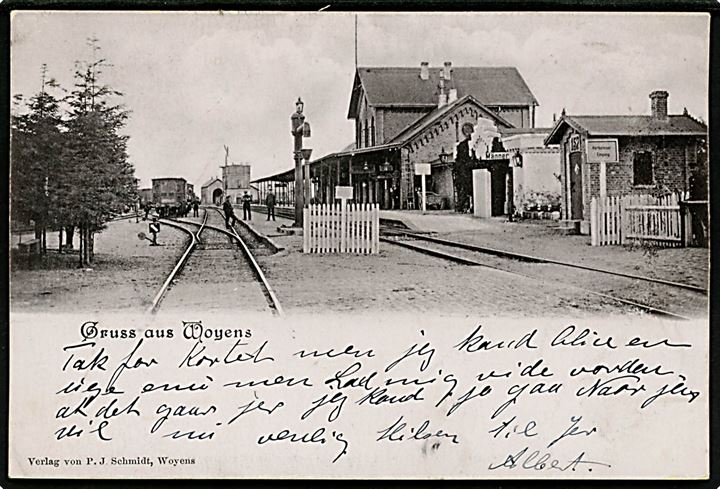 Männer
Gruss aus Woyens
Tak for Kortet men jeg kand Alice en
uge enu men Lad mig vide vorden
at det gaar jer jeg kand jo gaa Naar jeg
vil nu venlig Hilsen til Jer
Albert.
Verlag von P. J. Schmidt, Woyens